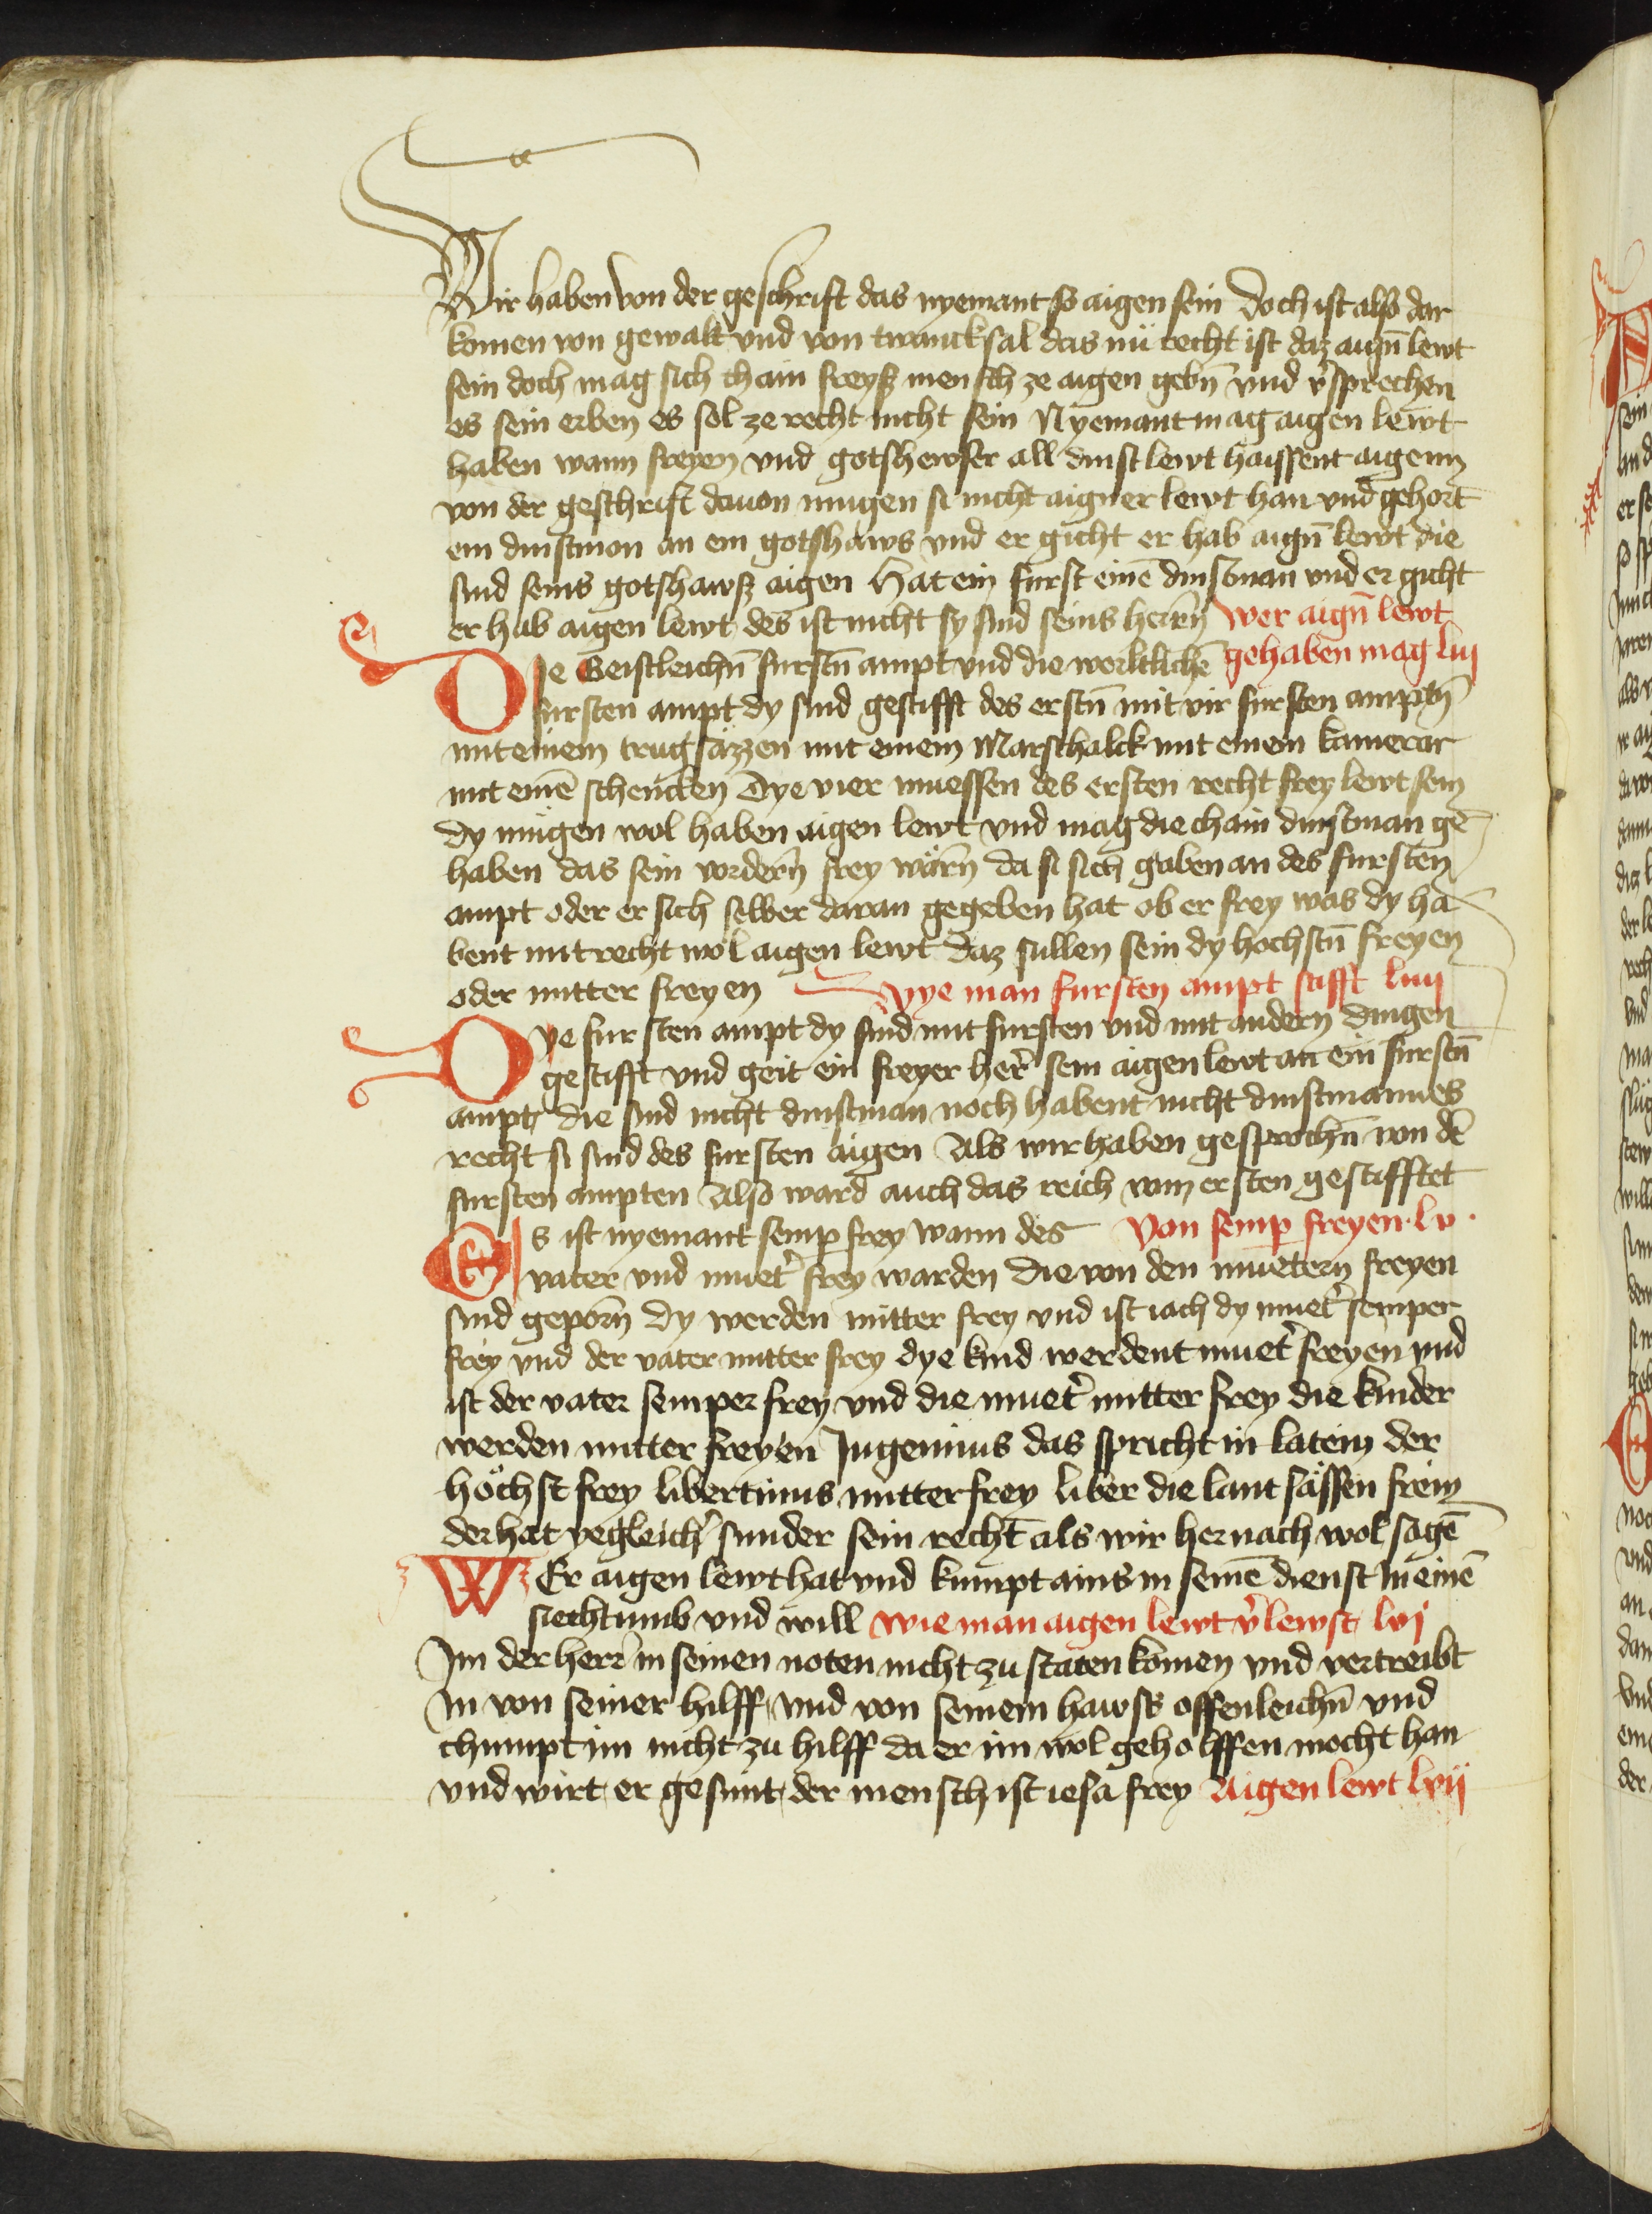 Wir haben von der geschrift das nyemant so aigen sein doch ist also dar
komen von gewalt vnd von twancksal das nu recht ist daz aign̄ lewt
sein doch mag sich chain freysz mensch ze aigen gebn̄ vnd v̓sprechen
es sein erben es sol ze recht nicht sein Nyemant mag aigen lewt
haben wann freyen vnd gotshewser all dinstlewt haissent aigenn
von der geschrift dauon mugen si nicht aigner lewt han vnd gehort
ein dinstmon an ein gotshaws vnd er gicht er hab aign̄ lewt die
sind seins gotshawsz aigen Hat ein furst einē dinstman vnd er gicht
er hab aigen lewt des ist nicht sy sind seins herrn̄ Wer aign̄ lewt
Die Geistleichn̄ furstn̄ ampt vnd die werltlichē gehaben mag liij
fursten ampt dy sind gestifft des erstn̄ mit vir fursten amptn̄
mit einem trugsäzzen mit einem Marschalck mit einem kamerar
mit einē schencken Dye vier muessen des ersten recht frey lewt sein
dy mugen wol haben aigen lewt vnd mag die chain dinstman ge
haben das sein vordern̄ frey wärn̄ da si sich gaben an des fursten
ampt oder er sich selber daran gegeben hat ob er frey was dy ha
bent mit recht wol aigen lewt daz sullen sein dy hochstn̄ freyen
oder mitter freyen Wye man fursten ampt stifft liiij
Dye fursten ampt dy sind mit fursten vnd mit andern dingen
gestifft vnd geit ein freyer her̓ sein aigen lewt an ein furstn̄
ampt die sind nicht dinstman noch habent nicht dinstmannes
recht si sind des fursten aigen Als wir haben gesprochn̄ von dē
fursten ampten Also ward auch das reich vom ersten gestifftet
Es ist nyemant semp̱ frey wann des Von semp̱ freyen lv.
vater vnd muet̓ frey warden Die von den muetern̄ freyen
sind geporn̄ Dy werden mitter frey vnd ist iach dy muet̓ semper
frey vnd der vater mitter frey dye kind werdent muet̓ freyen vnd
ist der vater semper frey vnd die muet̓ mitter frey die kinder
werden mitter freyen Jngenuus das spricht in latein der
höchst frey libertinus mitter frey liber die lant sässen frein
der hat yegleich̓ sunder sein recht als wir hernach wol sagē
WEr aigen lewt hat vnd kumpt ains in seinē dienst in einē
siechtumb vnd will wie man aigen lewt v̓lewst lvj
Jm der herr in seinen noten nicht zu staten komen vnd vertreibt
in von seiner hilff vnd von seinem hawss offenleichn̄ vnd
chumpt im nicht zu hilff da er im wol geholffen mocht han
vnd wirt er gesunt der mensch ist iesa frey Aigen lewt lvij